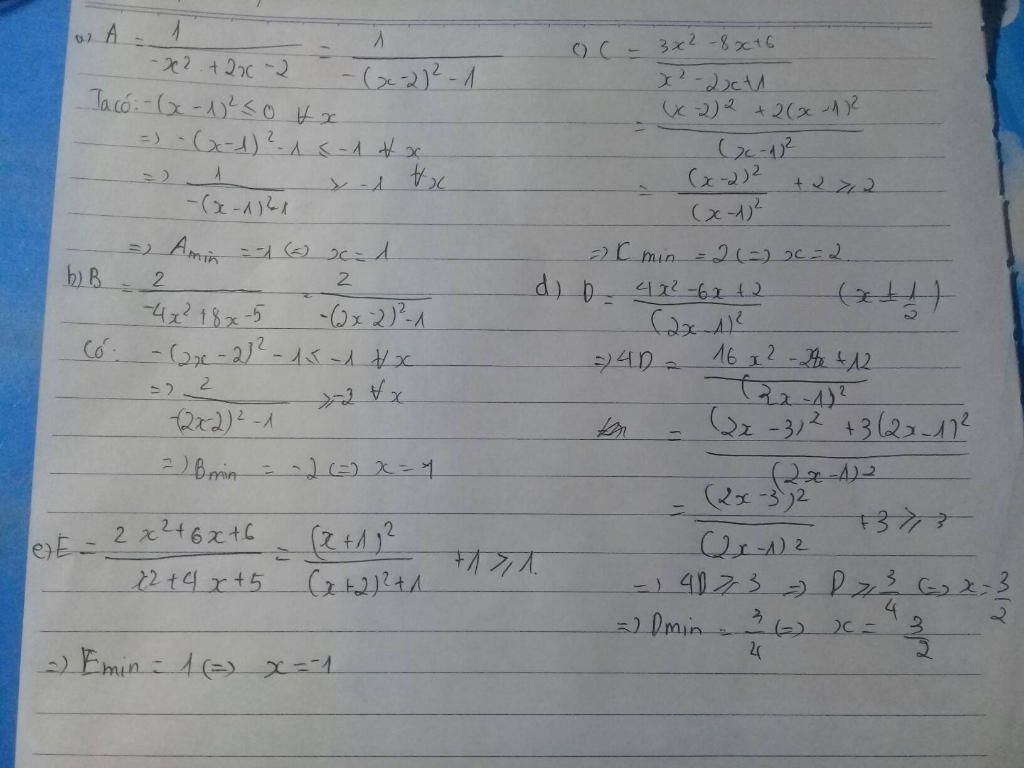 a) A = 1/(-x² + 2x - 2) = 1/(-(x-2)² - 1)
Ta có: -(x - 1)² ≤ 0 ∀x
=> -(x-1)² - 1 ≤ -1 ∀x
=> 1/(-(x-1)²-1) ≥ -1 ∀x
=> A min = -1 (=) x = 1
b) B = 2/(-4x²+8x-5) = 2/(-(2x-2)²-1)
Có: -(2x-2)² - 1 ≤ -1 ∀x
=> 2/(-(2x-2)²-1) ≥ -2 ∀x
=> B min = -2 (=) x = 1
e) E = (2x²+6x+6)/(x²+4x+5) = (x+1)²/((x+2)²+1) + 1 ≥ 1.
=> E min = 1 (=) x = -1
c) C = (3x² - 8x+6)/(x² - 2x+1)
= ((x-2)² + 2(x-1)²)/(x-1)²
= (x-2)²/(x-1)² + 2 ≥ 2
=> C min = 2 (=) x = 2
d) D = (4x² - 6x + 2)/(2x-1)² (x ≠ 1/2)
=> 4D = (16x² - 24x + 12)/(2x-1)²
= ((2x-3)² + 3(2x-1)²)/(2x-1)²
= (2x-3)²/(2x-1)² + 3 ≥ 3
=> 4D ≥ 3 => D ≥ 3/4 (=) x = 3/2
=> Dmin = 3/4 (=) x = 3/2